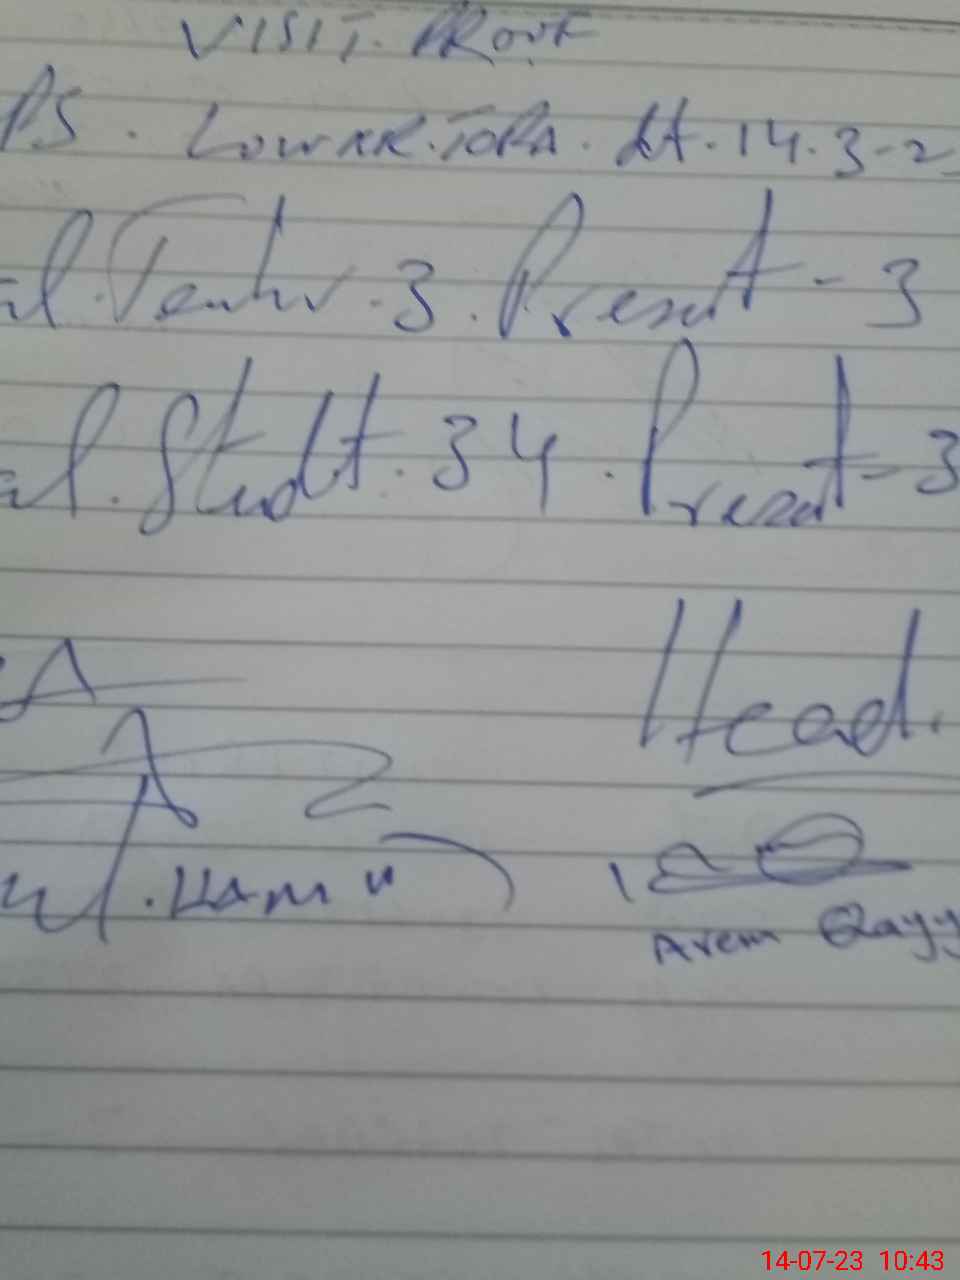 VISIT. PROOF
PS. LOWER. TOPA. dt. 14.3-2
al. Teacher. 3. Present - 3
al. Studt. 34. Present - 3
Head.
ul. HAmid
Arem Qayy
14-07-23 10:43